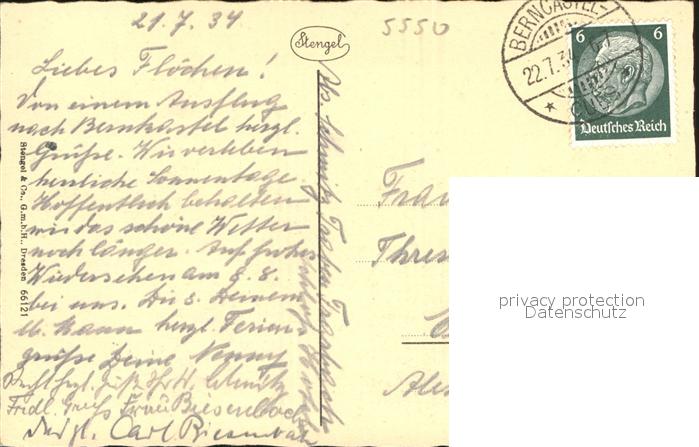 21.7.34
5550
Stengel
BERNCASTEL-
22.7.34
CUES
6 6
Deutsches Reich
Liebes Flöchen!
Von einem Ausflug
nach Bernkastel herzl.
Grüße. Wir verleben
herrliche Sonnentage.
Hoffentlich behalten
wir das schöne Wetter
noch länger. Auf frohes
Wiedersehen am 8.8.
bei uns. Dir u. Deinem
lb. Mann herzl. Ferien
grüße Deine Nenny
Fridl. Gruß Frau Biesenbach
Carl Biesenbach
Abs. Schmitz Traben Trarbach
Stengel & Co., G.m.b.H., Dresden 66121
Frau
privacy protection
Datenschutz